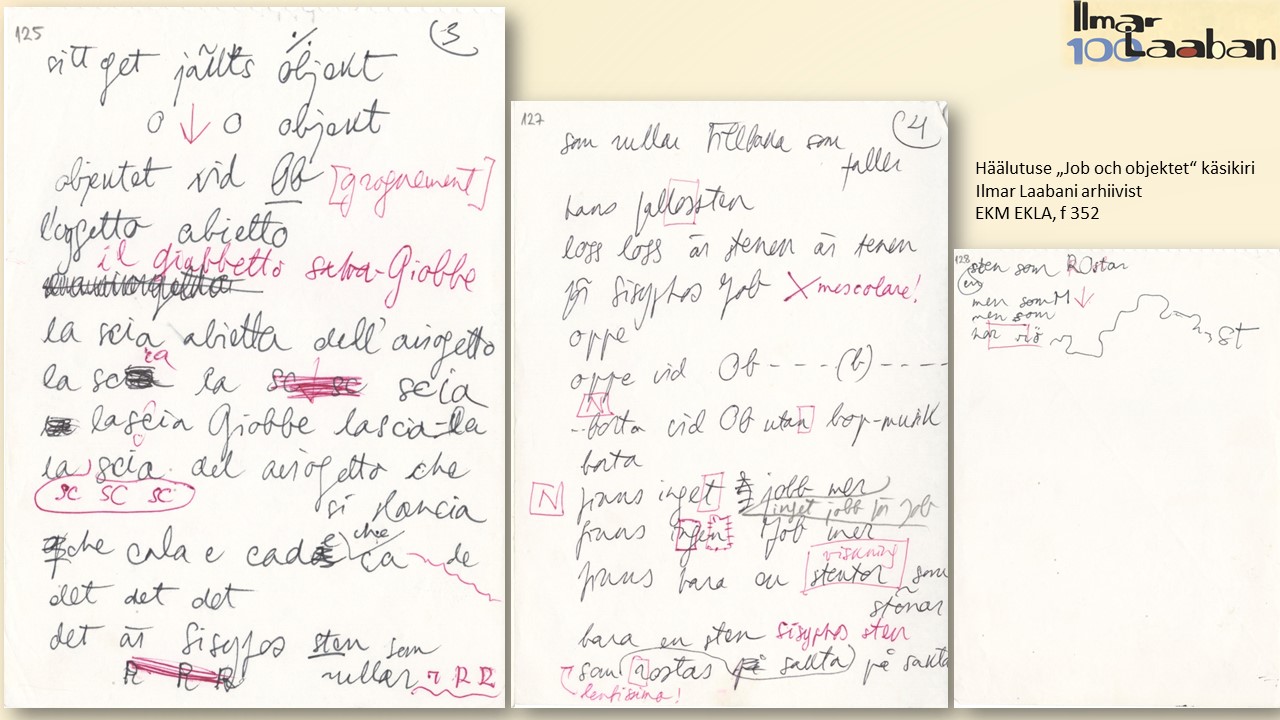 125
3
sitt get jällts objekt
o ↓ o objekt
objektet vid Ob [grognement]
l'oggetto abietto
il giobbetto salva-Giobbe
la scia abietta dell'aviogetto
ra
la sc la scia
lascia Giobbe lascia-la
la scia del aviogetto che
sc sc sc
si slancia
che cala e cade che ca de
det det det
det är Sisyfos sten som
R R R rullar r R R
127
4
som rullar tillbaka som
faller
hans fallossten
loss loss är stenen är tenen
för Sisyphos Job X mescolare!
oppe
oppe vid Ob - - - - (b) - - - - -
N
borta vid Ob utan bop-musik
borta
N finns inget jobb mer
inget jobb för Job
finns ingen Job mer
viskning
finns bara en stentor som
stönar
bara en sten Sisyphos sten
som rostas på sakta på sakta
lentissimo!
128
sten som ROstar
en
men som M ↓
men som
har rös ST
Ilmar
100 Laaban
Häälutuse „Job och objektet“ käsikiri
Ilmar Laabani arhiivist
EKM EKLA, f 352